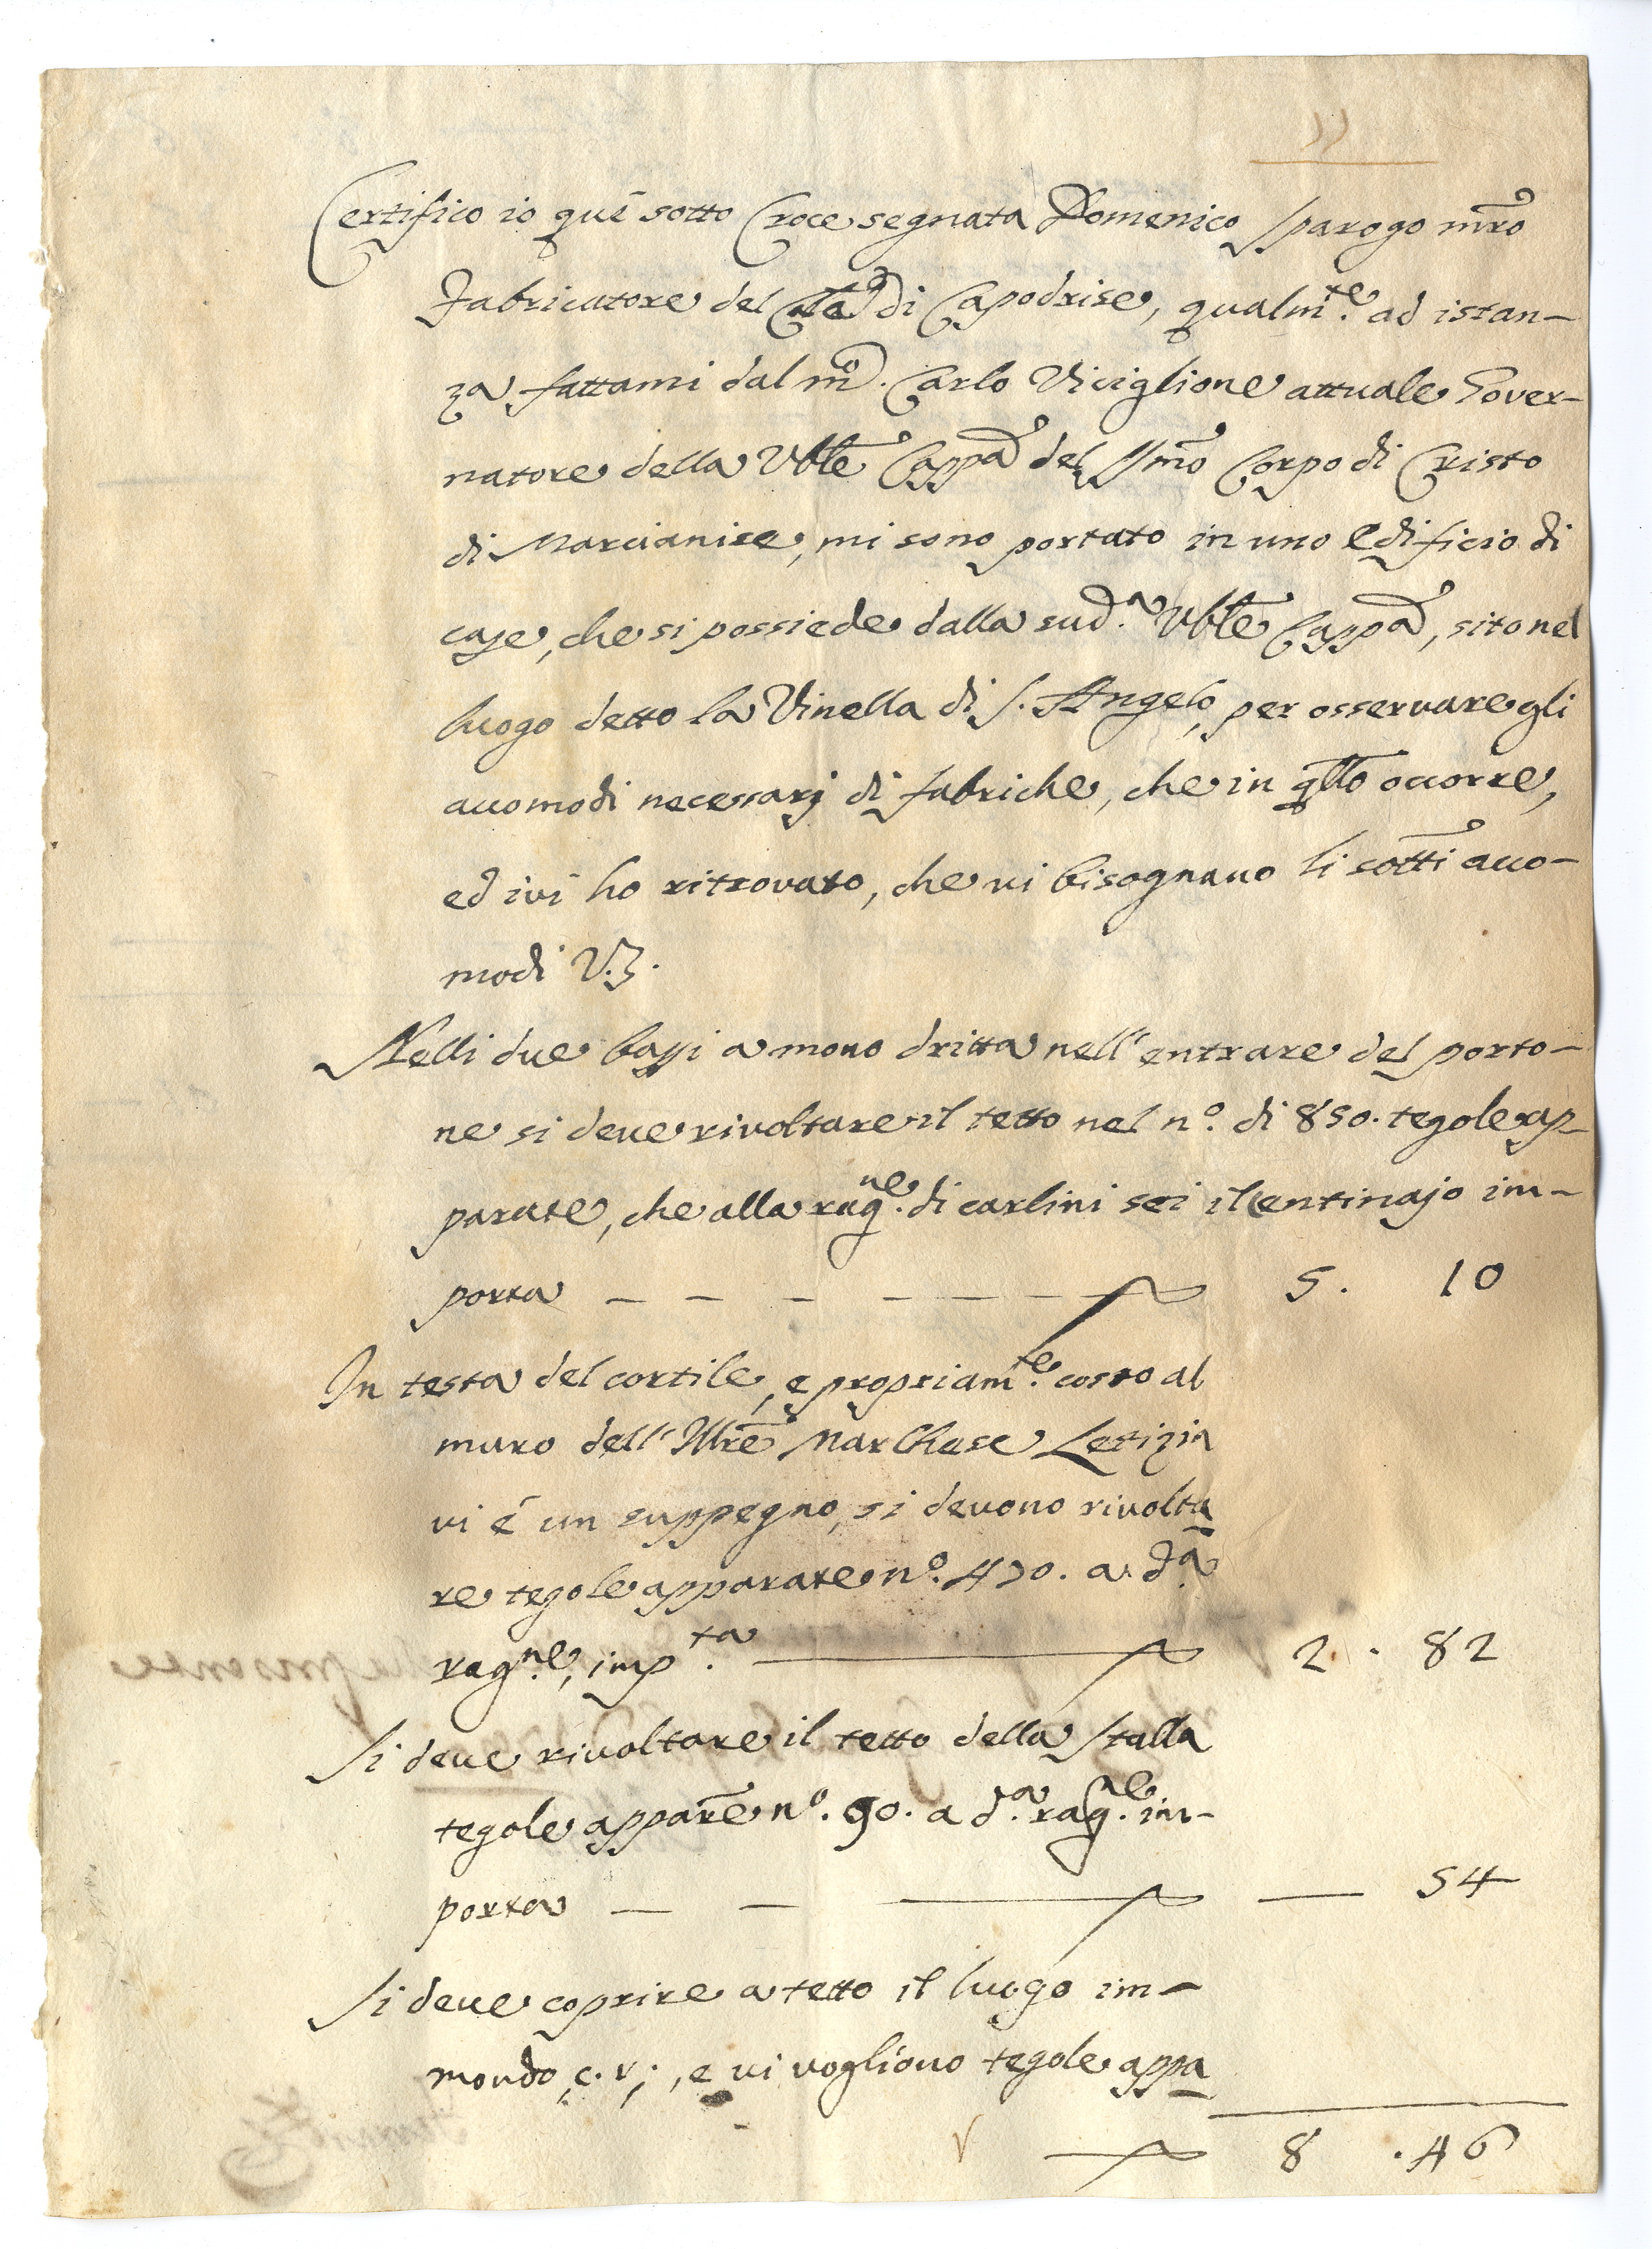 11
Certifico io quì sotto Croce segnata Domenico Sparogo mro
Fabricatore del Cle di Capodrise, qualmte. ad istan-
za fattami dal mo. Carlo Viciglione attuale Gover-
natore della Vble Cappa del SSmo Corpo di Cristo
di Marcianise, mi sono portato in uno edificio di
case, che si possiede dalla sud.a Vble Cappa, sito nel
luogo detto la Vinella di S. Angelo, per osservare gli
accomodi necessarj di fabriche, che in qllo occorre,
ed ivi ho ritrovato, che vi bisognano li sotti acco-
modi V.Z.
Nelli due bassi a mano dritta nell'entrare del porto-
ne si deve rivoltare il tetto nel n.o di 850. tegole ap-
parate, che alla ragne. di carlini sei il Centinajo im-
porta — — — — — — 5. 10
In testa del cortile, e propriamte. costo al
muro dell'Illre Marchese Letizia
vi è un suppegno, si devono rivolta
re tegole apparate n.o 470. a d.a
ragne., impta. — 2. 82
Si deve rivoltare il tetto della Stalla
tegole appare n.o. 90. a d.a ragne. im-
porta — — — — 54
Si deve coprire a tetto il luogo im-
mondo, c. v;, e vi vogliono tegole appa
8 .46